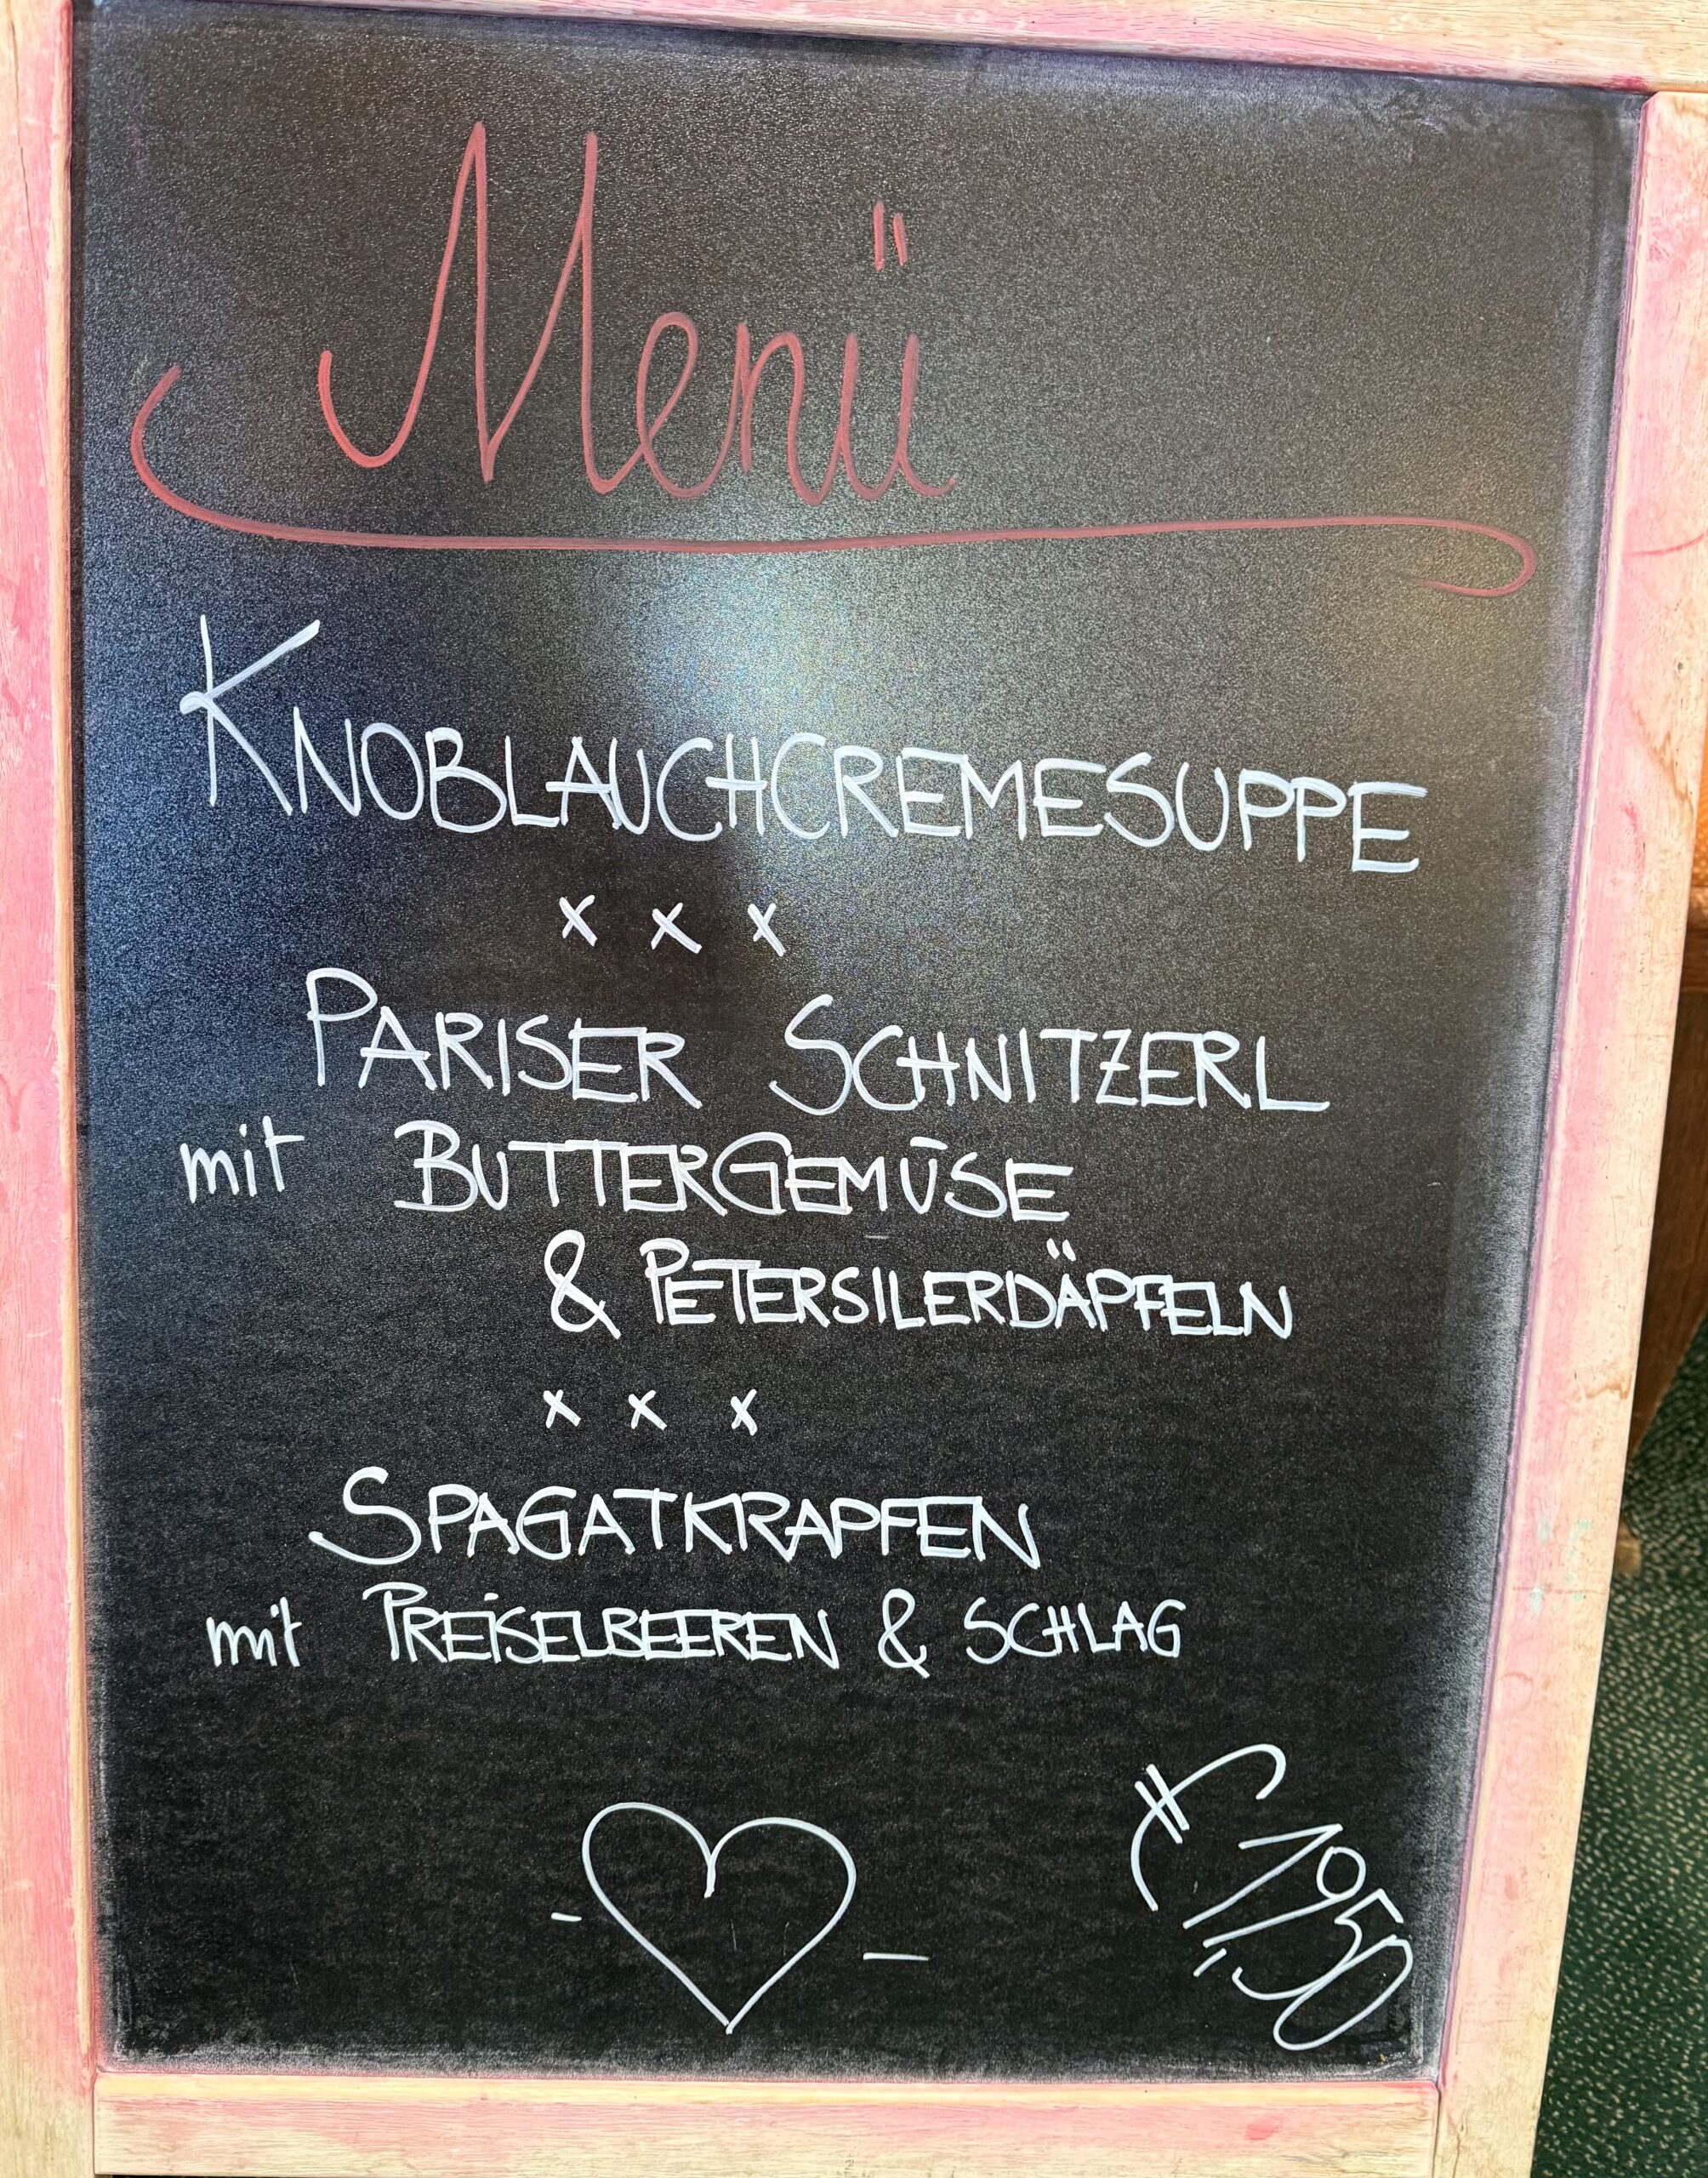 Menü
KNOBLAUCHCREMESUPPE
x x x
PARISER SCHNITZERL
mit BUTTERGEMÜSE
& PETERSILERDÄPFELN
x x x
SPAGATKRAPFEN
mit PREISELBEEREN & SCHLAG
€ 19,50